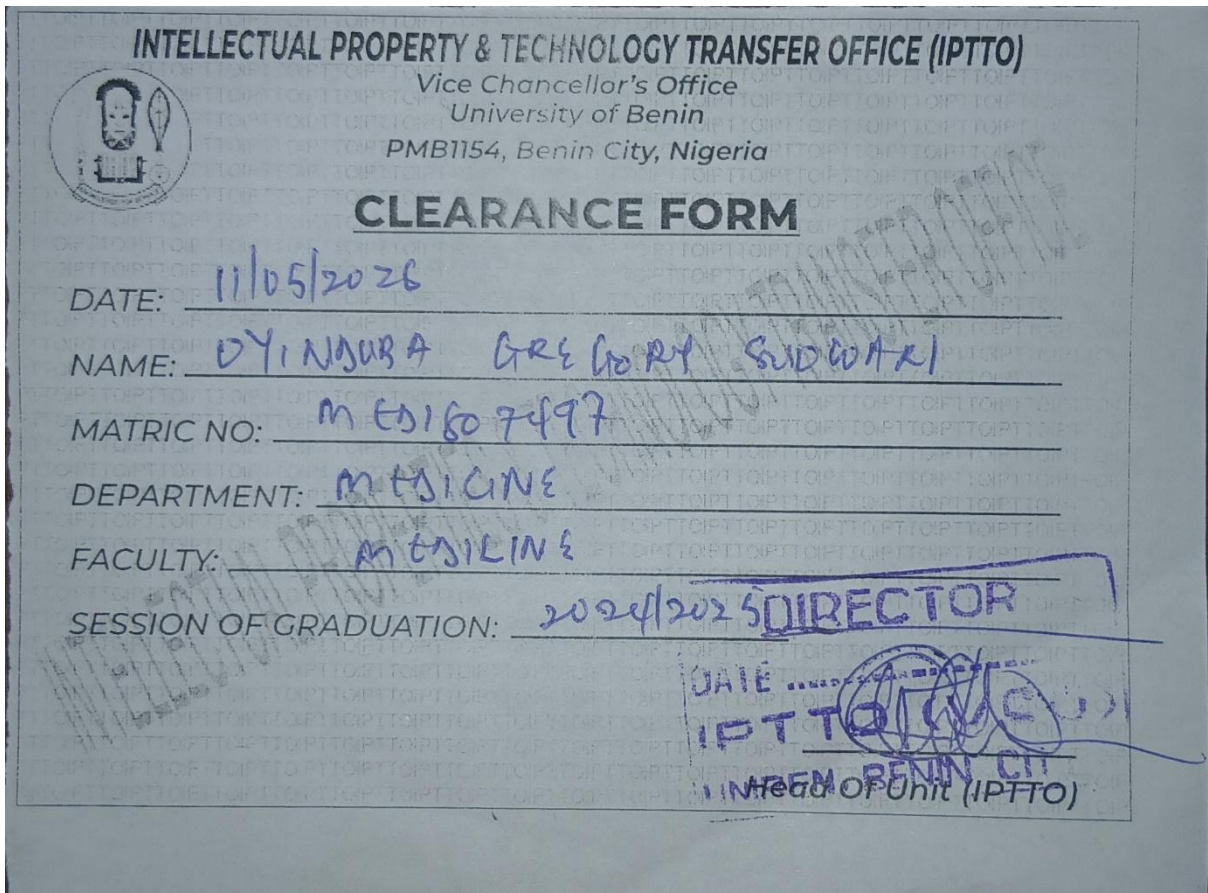 INTELLECTUAL PROPERTY & TECHNOLOGY TRANSFER OFFICE (IPTTO)
Vice Chancellor's Office
University of Benin
PMB1154, Benin City, Nigeria
CLEARANCE FORM
DATE: 11/05/2026
NAME: OYINDURA GREGORY SUDWARI
MATRIC NO: MED1607497
DEPARTMENT: MEDICINE
FACULTY: MEDICINE
SESSION OF GRADUATION: 2024/2025
DIRECTOR
DATE
IPTTO
BENIN
Head Of Unit (IPTTO)